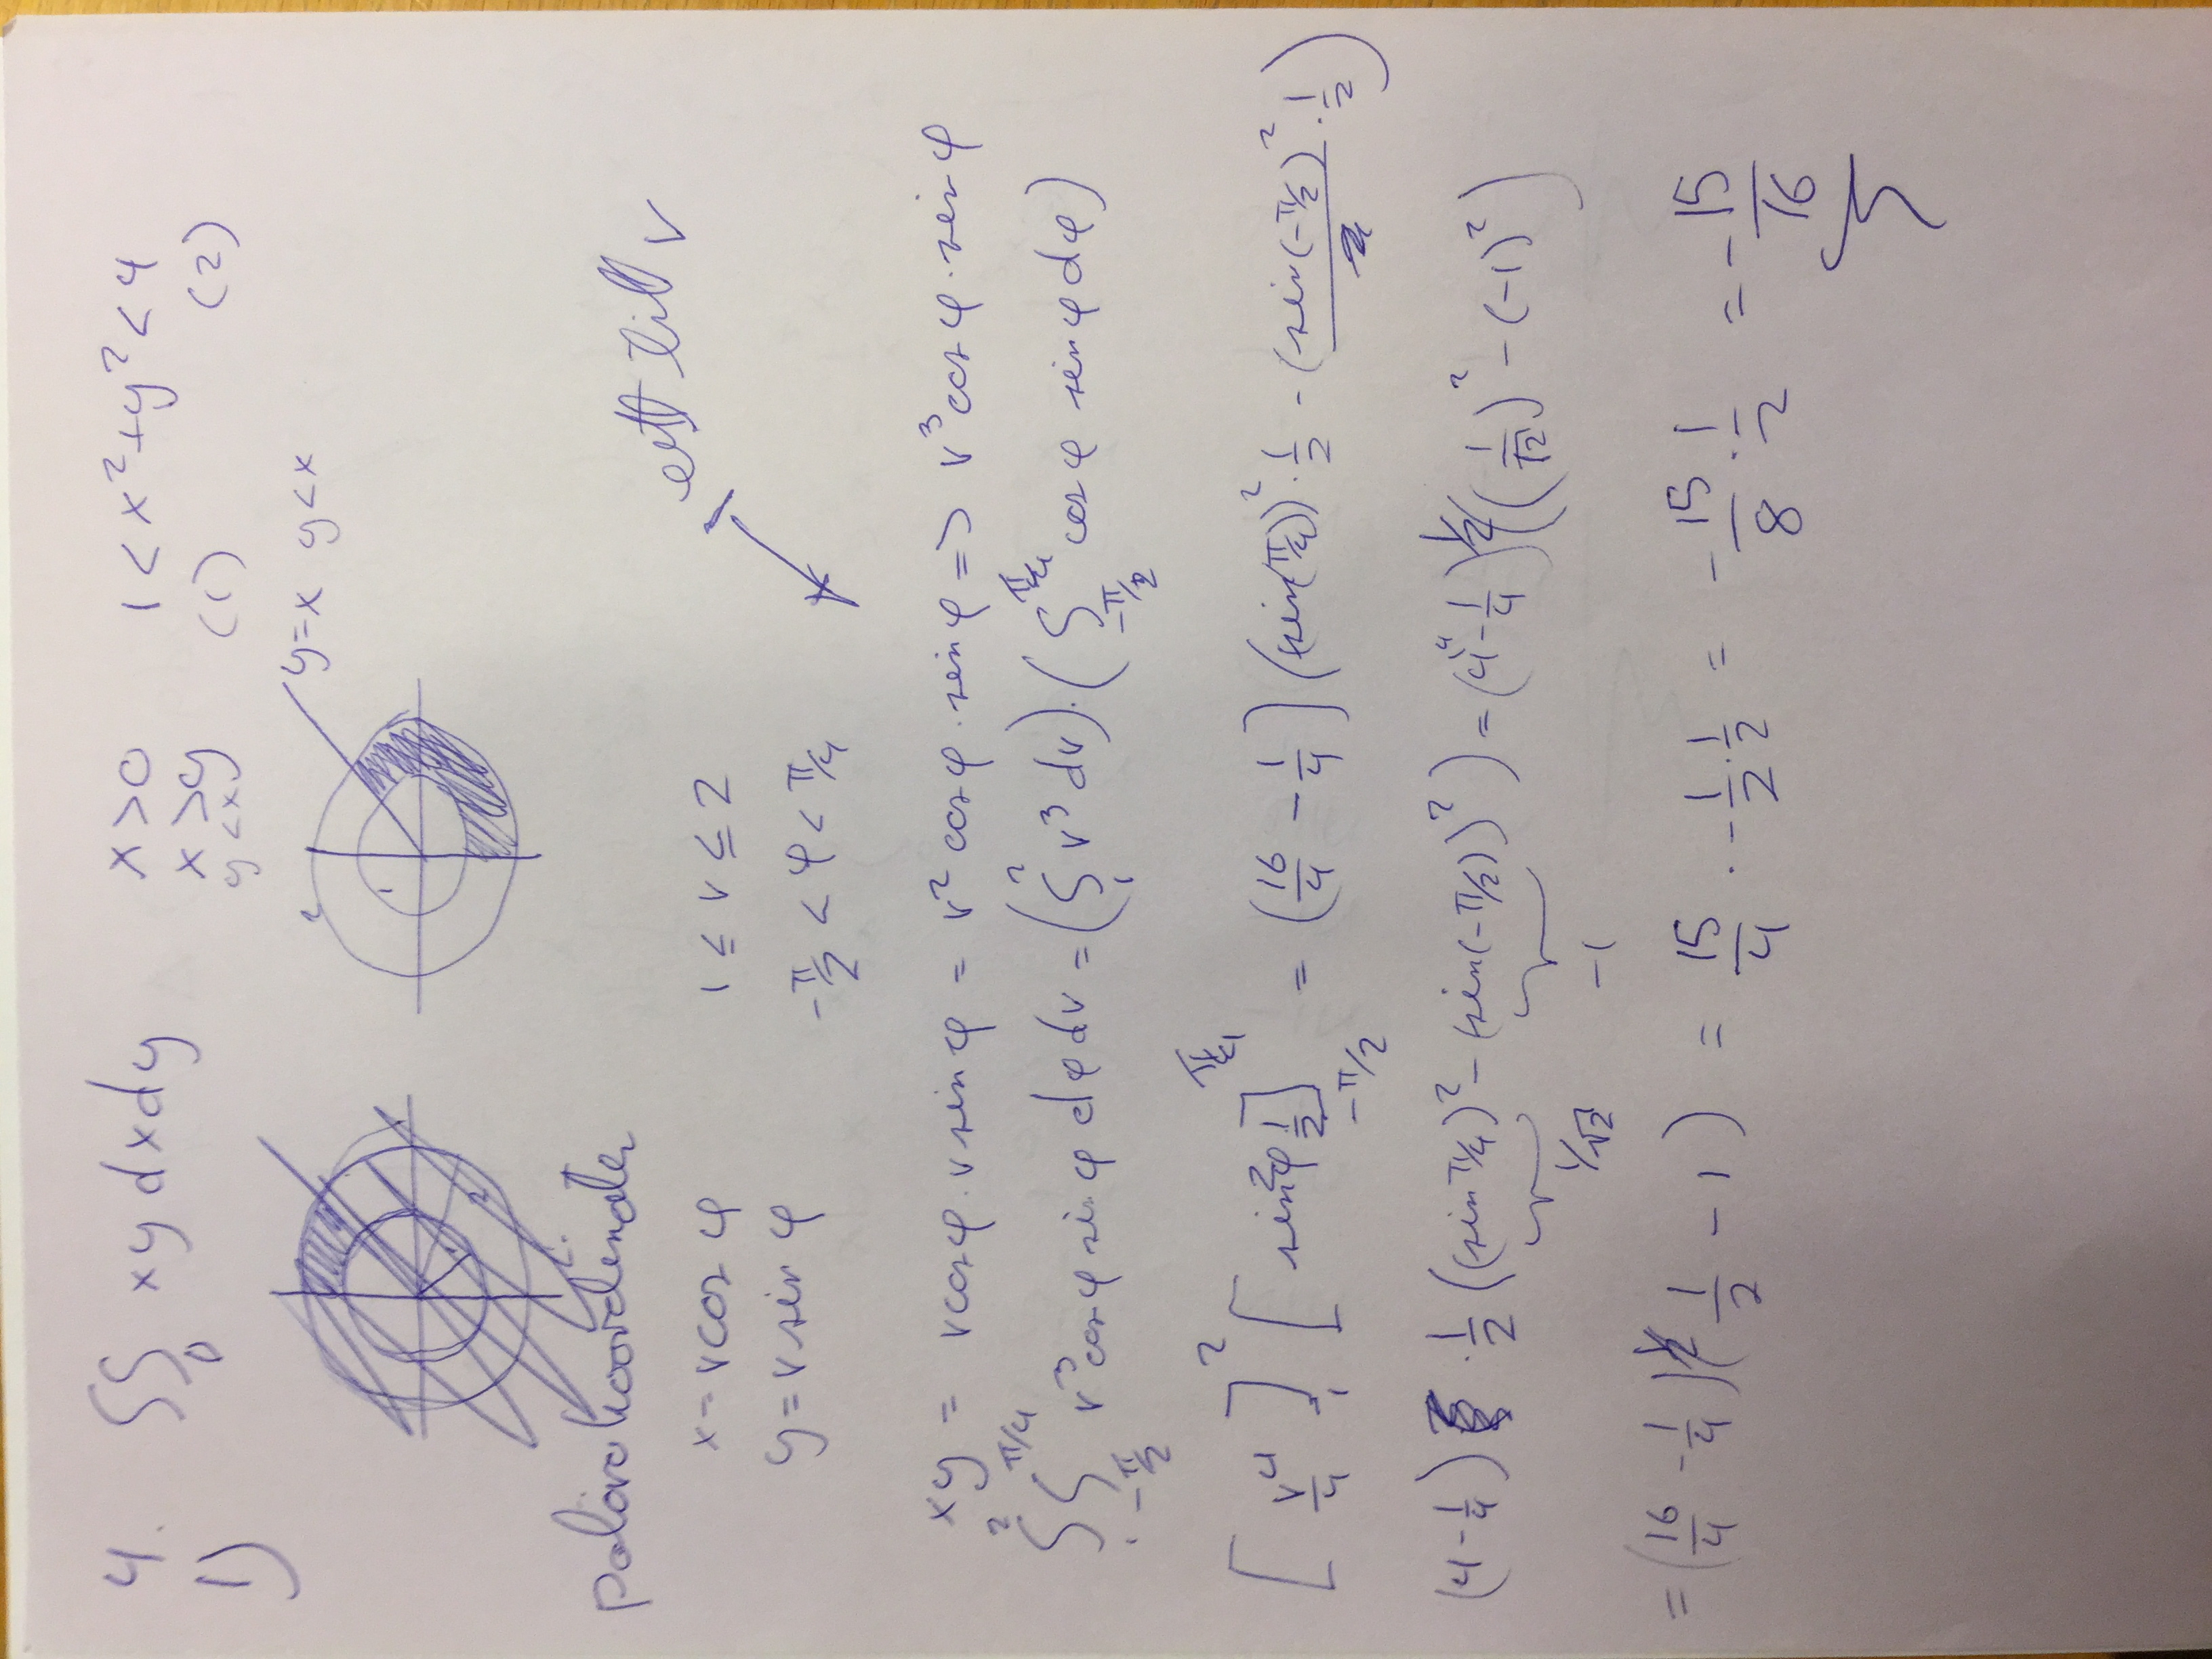 4. ∫∫_D xy dxdy   x>0   1 < x²+y² < 4
1)   x>y   (1)   (2)
y<x
y=x   y<x
2
1
1
2
polära koordinater
ett till r
x = r cos φ   1 ≤ r ≤ 2
y = r sin φ   -π/2 < φ < π/4
xy = r cos φ · r sin φ = r² cos φ · sin φ => r³ cos φ · sin φ
∫_1^2 ∫_{-π/2}^{π/4} r³ cos φ sin φ dφ dr = (∫_1^2 r³ dr) · (∫_{-π/2}^{π/4} cos φ sin φ dφ)
[r⁴/4]_1^2 [sin²φ 1/2]_{-π/2}^{π/4} = (16/4 - 1/4] ((sin(π/4))² · 1/2 - (sin(-π/2)² · 1/2)
(4 - 1/4) · 1/2 ((sin π/4)² - (sin(-π/2))²) = (4 - 1/4) 1/2 ((1/√2)² - (-1)²)
1/√2   -1
= (16/4 - 1/4) 1/2 (1/2 - 1) = 15/4 · -1/2 · 1/2 = -15/8 · 1/2 = -15/16